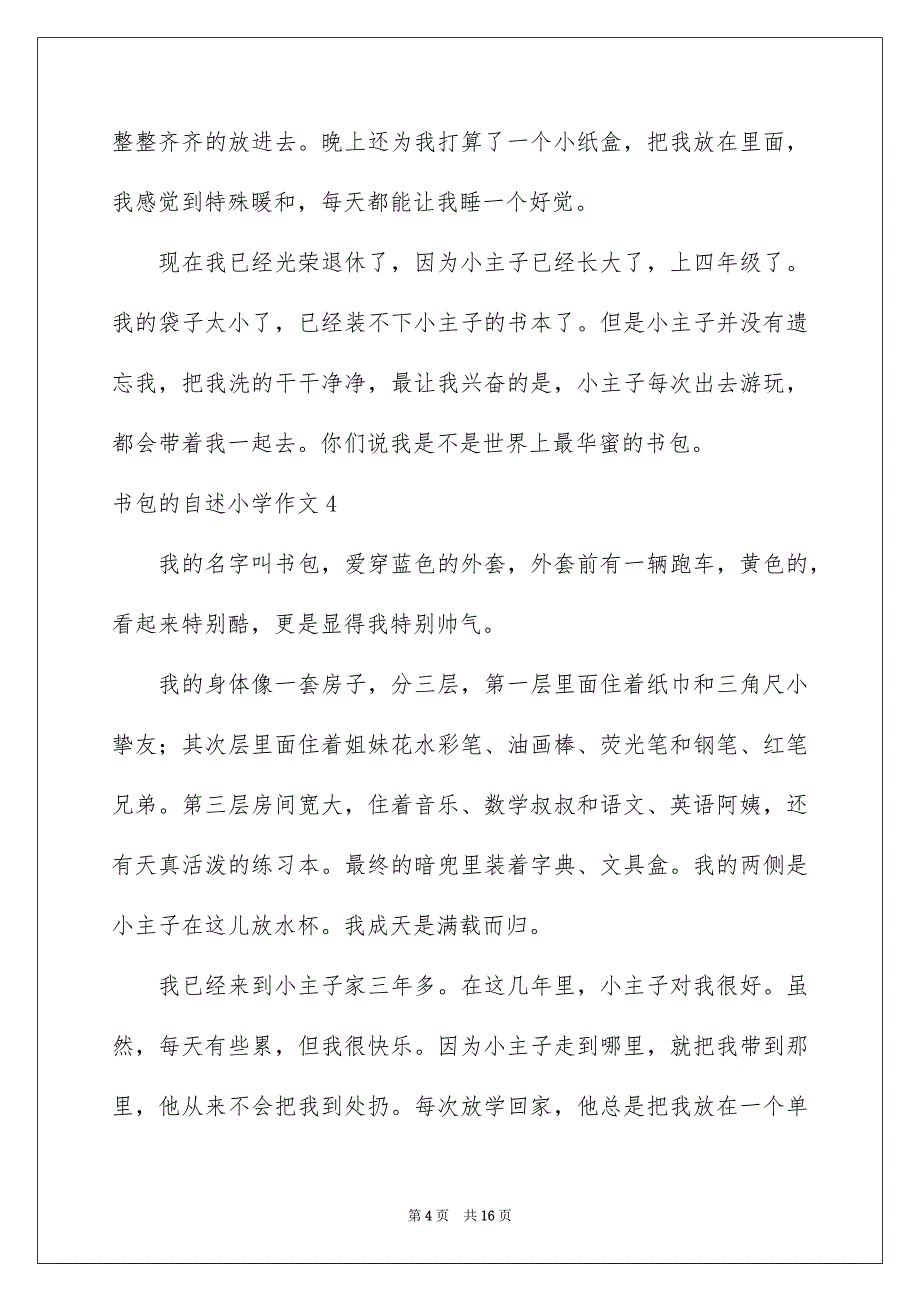 整整齐齐的放进去。晚上还为我打算了一个小纸盒，把我放在里面，
我感觉到特殊暖和，每天都能让我睡一个好觉。
现在我已经光荣退休了，因为小主子已经长大了，上四年级了。
我的袋子太小了，已经装不下小主子的书本了。但是小主子并没有遗
忘我，把我洗的干干净净，最让我兴奋的是，小主子每次出去游玩，
都会带着我一起去。你们说我是不是世界上最华蜜的书包。
书包的自述小学作文 4
我的名字叫书包，爱穿蓝色的外套，外套前有一辆跑车，黄色的，
看起来特别酷，更是显得我特别帅气。
我的身体像一套房子，分三层，第一层里面住着纸巾和三角尺小
挚友；其次层里面住着姐妹花水彩笔、油画棒、荧光笔和钢笔、红笔
兄弟。第三层房间宽大，住着音乐、数学叔叔和语文、英语阿姨，还
有天真活泼的练习本。最终的暗兜里装着字典、文具盒。我的两侧是
小主子在这儿放水杯。我成天是满载而归。
我已经来到小主子家三年多。在这几年里，小主子对我很好。虽
然，每天有些累，但我很快乐。因为小主子走到哪里，就把我带到那
里，他从来不会把我到处扔。每次放学回家，他总是把我放在一个单
第 4 页 共 16 页